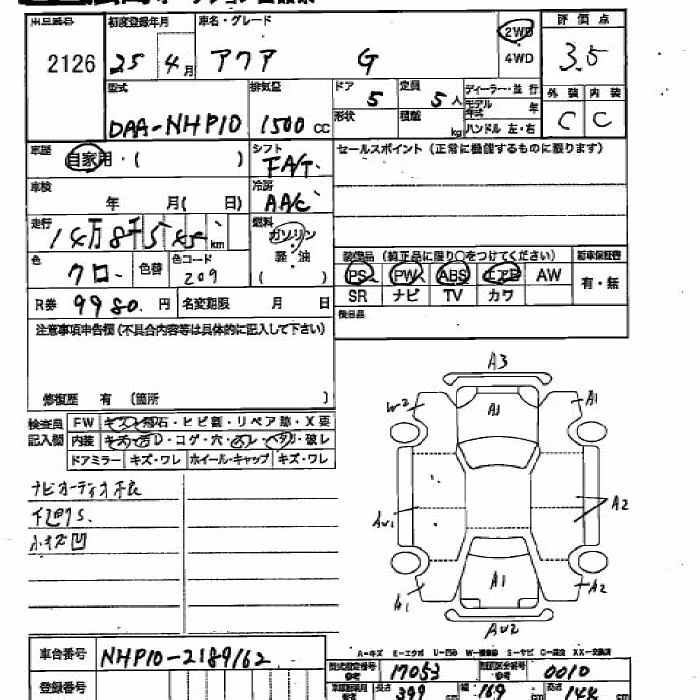 出品番号 初度登録年月 車名・グレード 評価点
2126 25 4月 アクア G 2WD 4WD 3.5
型式 排気量 ドア 定員 ディーラー・並行 外装 内装
DAA-NHP10 1500cc 5 5人 モデル年式 年 C C
形状 積載 kg ハンドル 左・右
車歴 自家用・( ) シフト FAT セールスポイント(正常に機能するものに限ります)
車検 年 月( 日) 冷房 AAC
走行 14万8千545km 燃料 ガソリン 軽油 ( )
色 クロ 色替 色コード 209
装備品(純正品に限り○をつけてください) 新車保証書
PS PW ABS エアB AW 有・無
SR ナビ TV カワ
R券 9980円 名変期限 月 日
後日品
注意事項申告欄(不具合内容等は具体的に記入して下さい)
修復歴 有(箇所 )
検査員記入欄 FW キズ・飛石・ヒビ割・リペア跡・X要
内装 D・コゲ・穴・ ・ ・破レ
ドアミラー キズ・ワレ ホイール・キャップ キズ・ワレ
ナビオーディオ
S.
小キズ凹
A3
W2 A1 A1
AU1 A2
A1 A1 A2
AU2
車台番号 NHP10-2189162
登録番号
A-キズ E-エクボ U-凹み
型式指定番号 17053 類別区分番号 0010
長さ 399 cm 幅 169 cm 高さ 144 cm